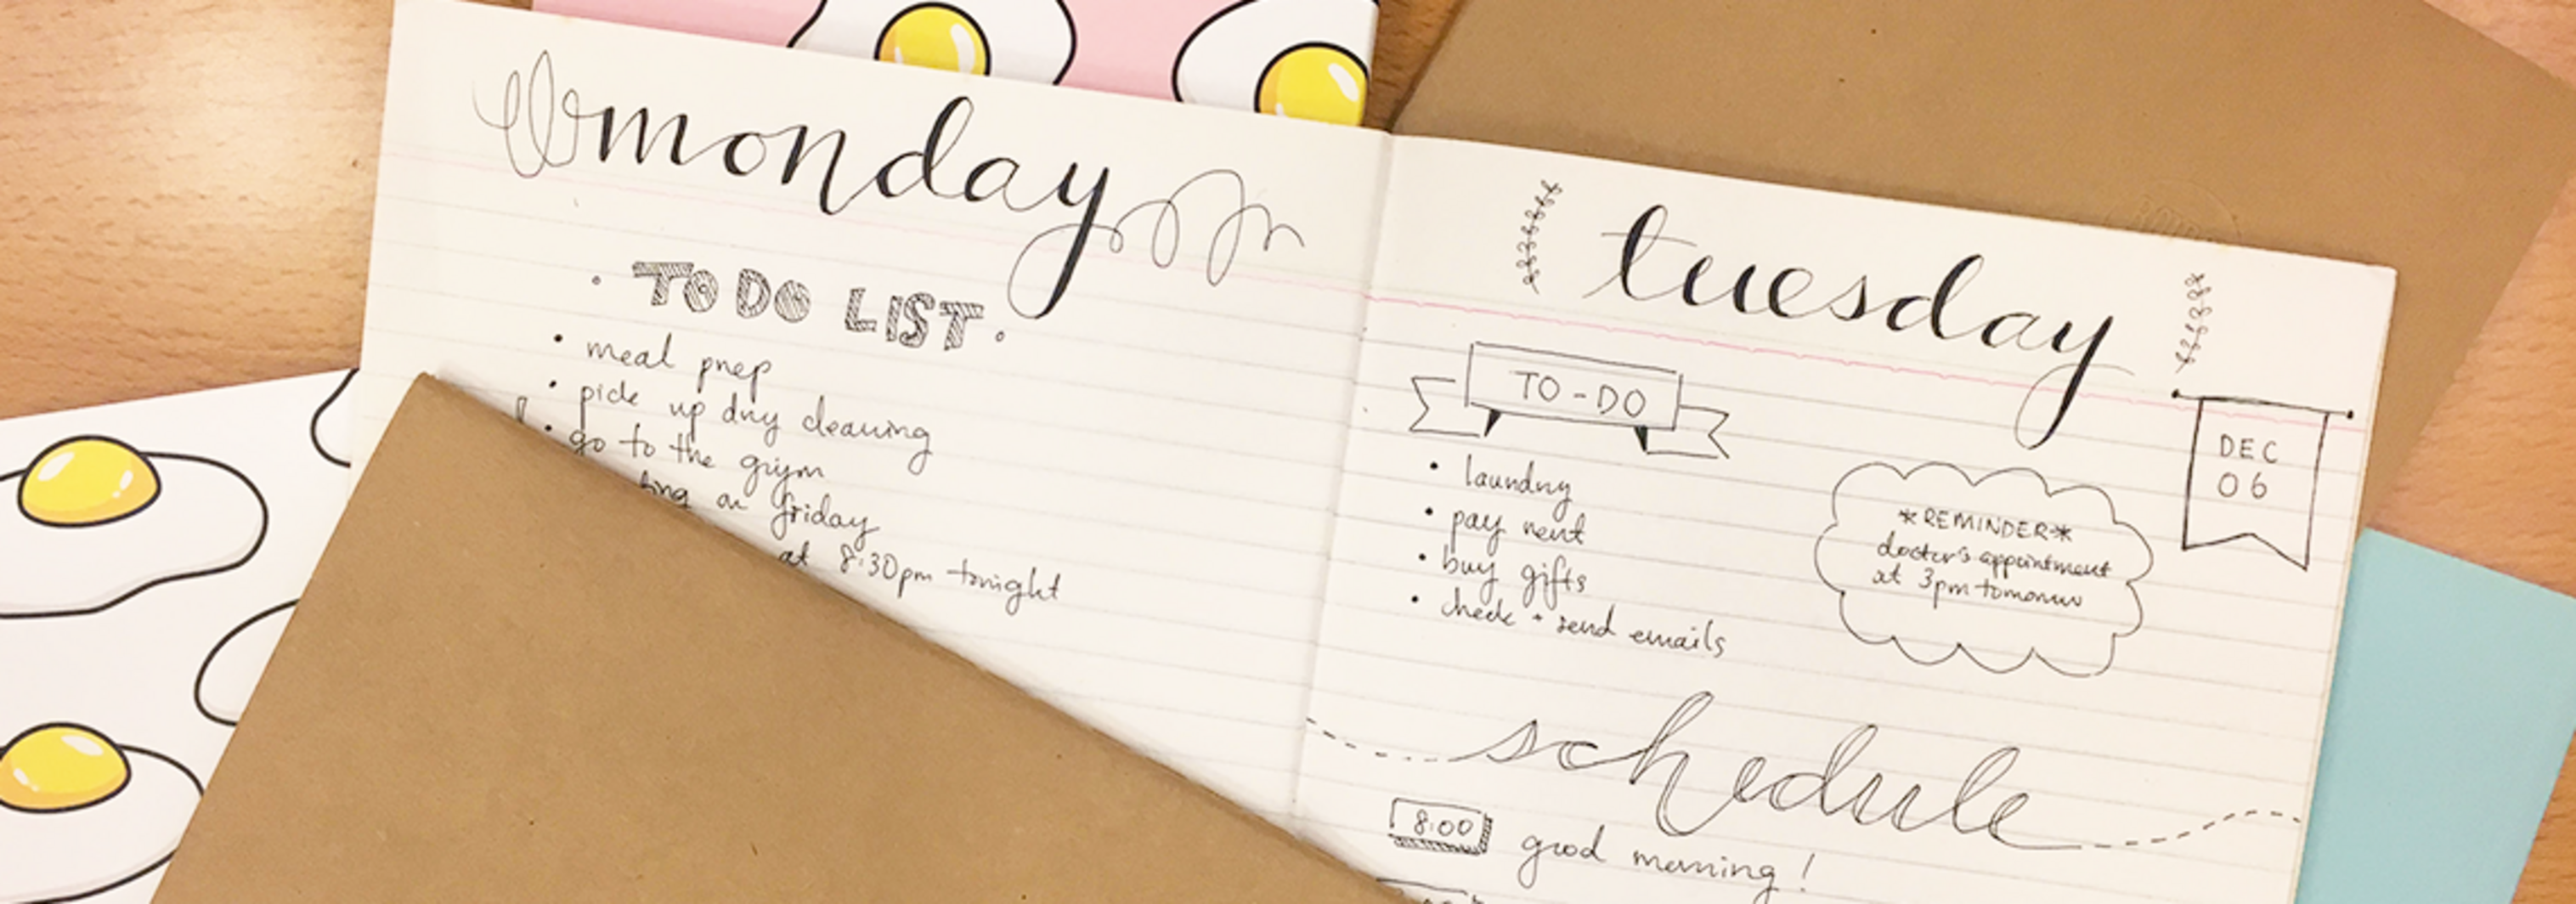 monday
TO DO LIST
• meal prep
• pick up dry cleaning
• go to the gym
on friday
at 8:30pm tonight
tuesday
DEC
06
TO-DO
• laundry
• pay rent
• buy gifts
• check + send emails
*REMINDER*
doctor's appointment
at 3pm tomorrow
schedule
8:00 good morning!